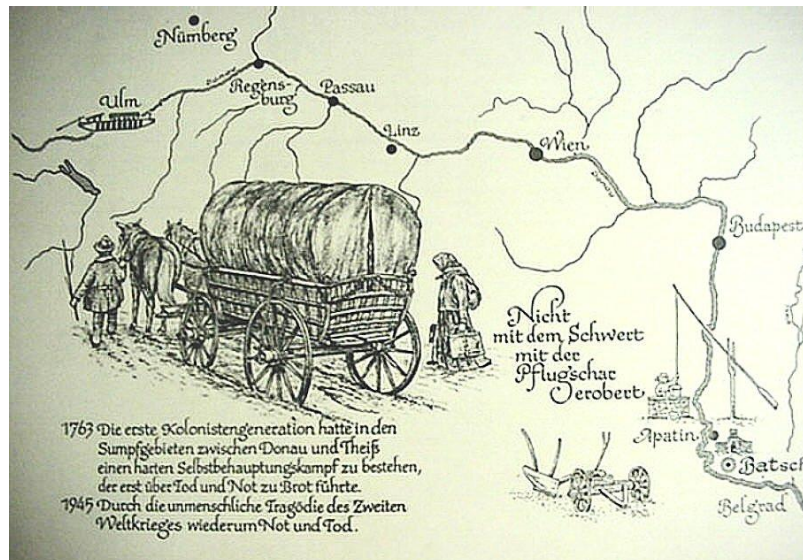 Nürnberg
Regens-
burg
Passau
Ulm
Linz
Wien
Budapest
Nicht
mit dem Schwert
mit der
Pflugschar
erobert
Apatin
Batsch
Belgrad
1763 Die erste Kolonistengeneration hatte in den
Sumpfgebieten zwischen Donau und Theiß
einen harten Selbstbehauptungskampf zu bestehen,
der erst über Tod und Not zu Brot führte.
1945 Durch die unmenschliche Tragödie des Zweiten
Weltkrieges wiederum Not und Tod.